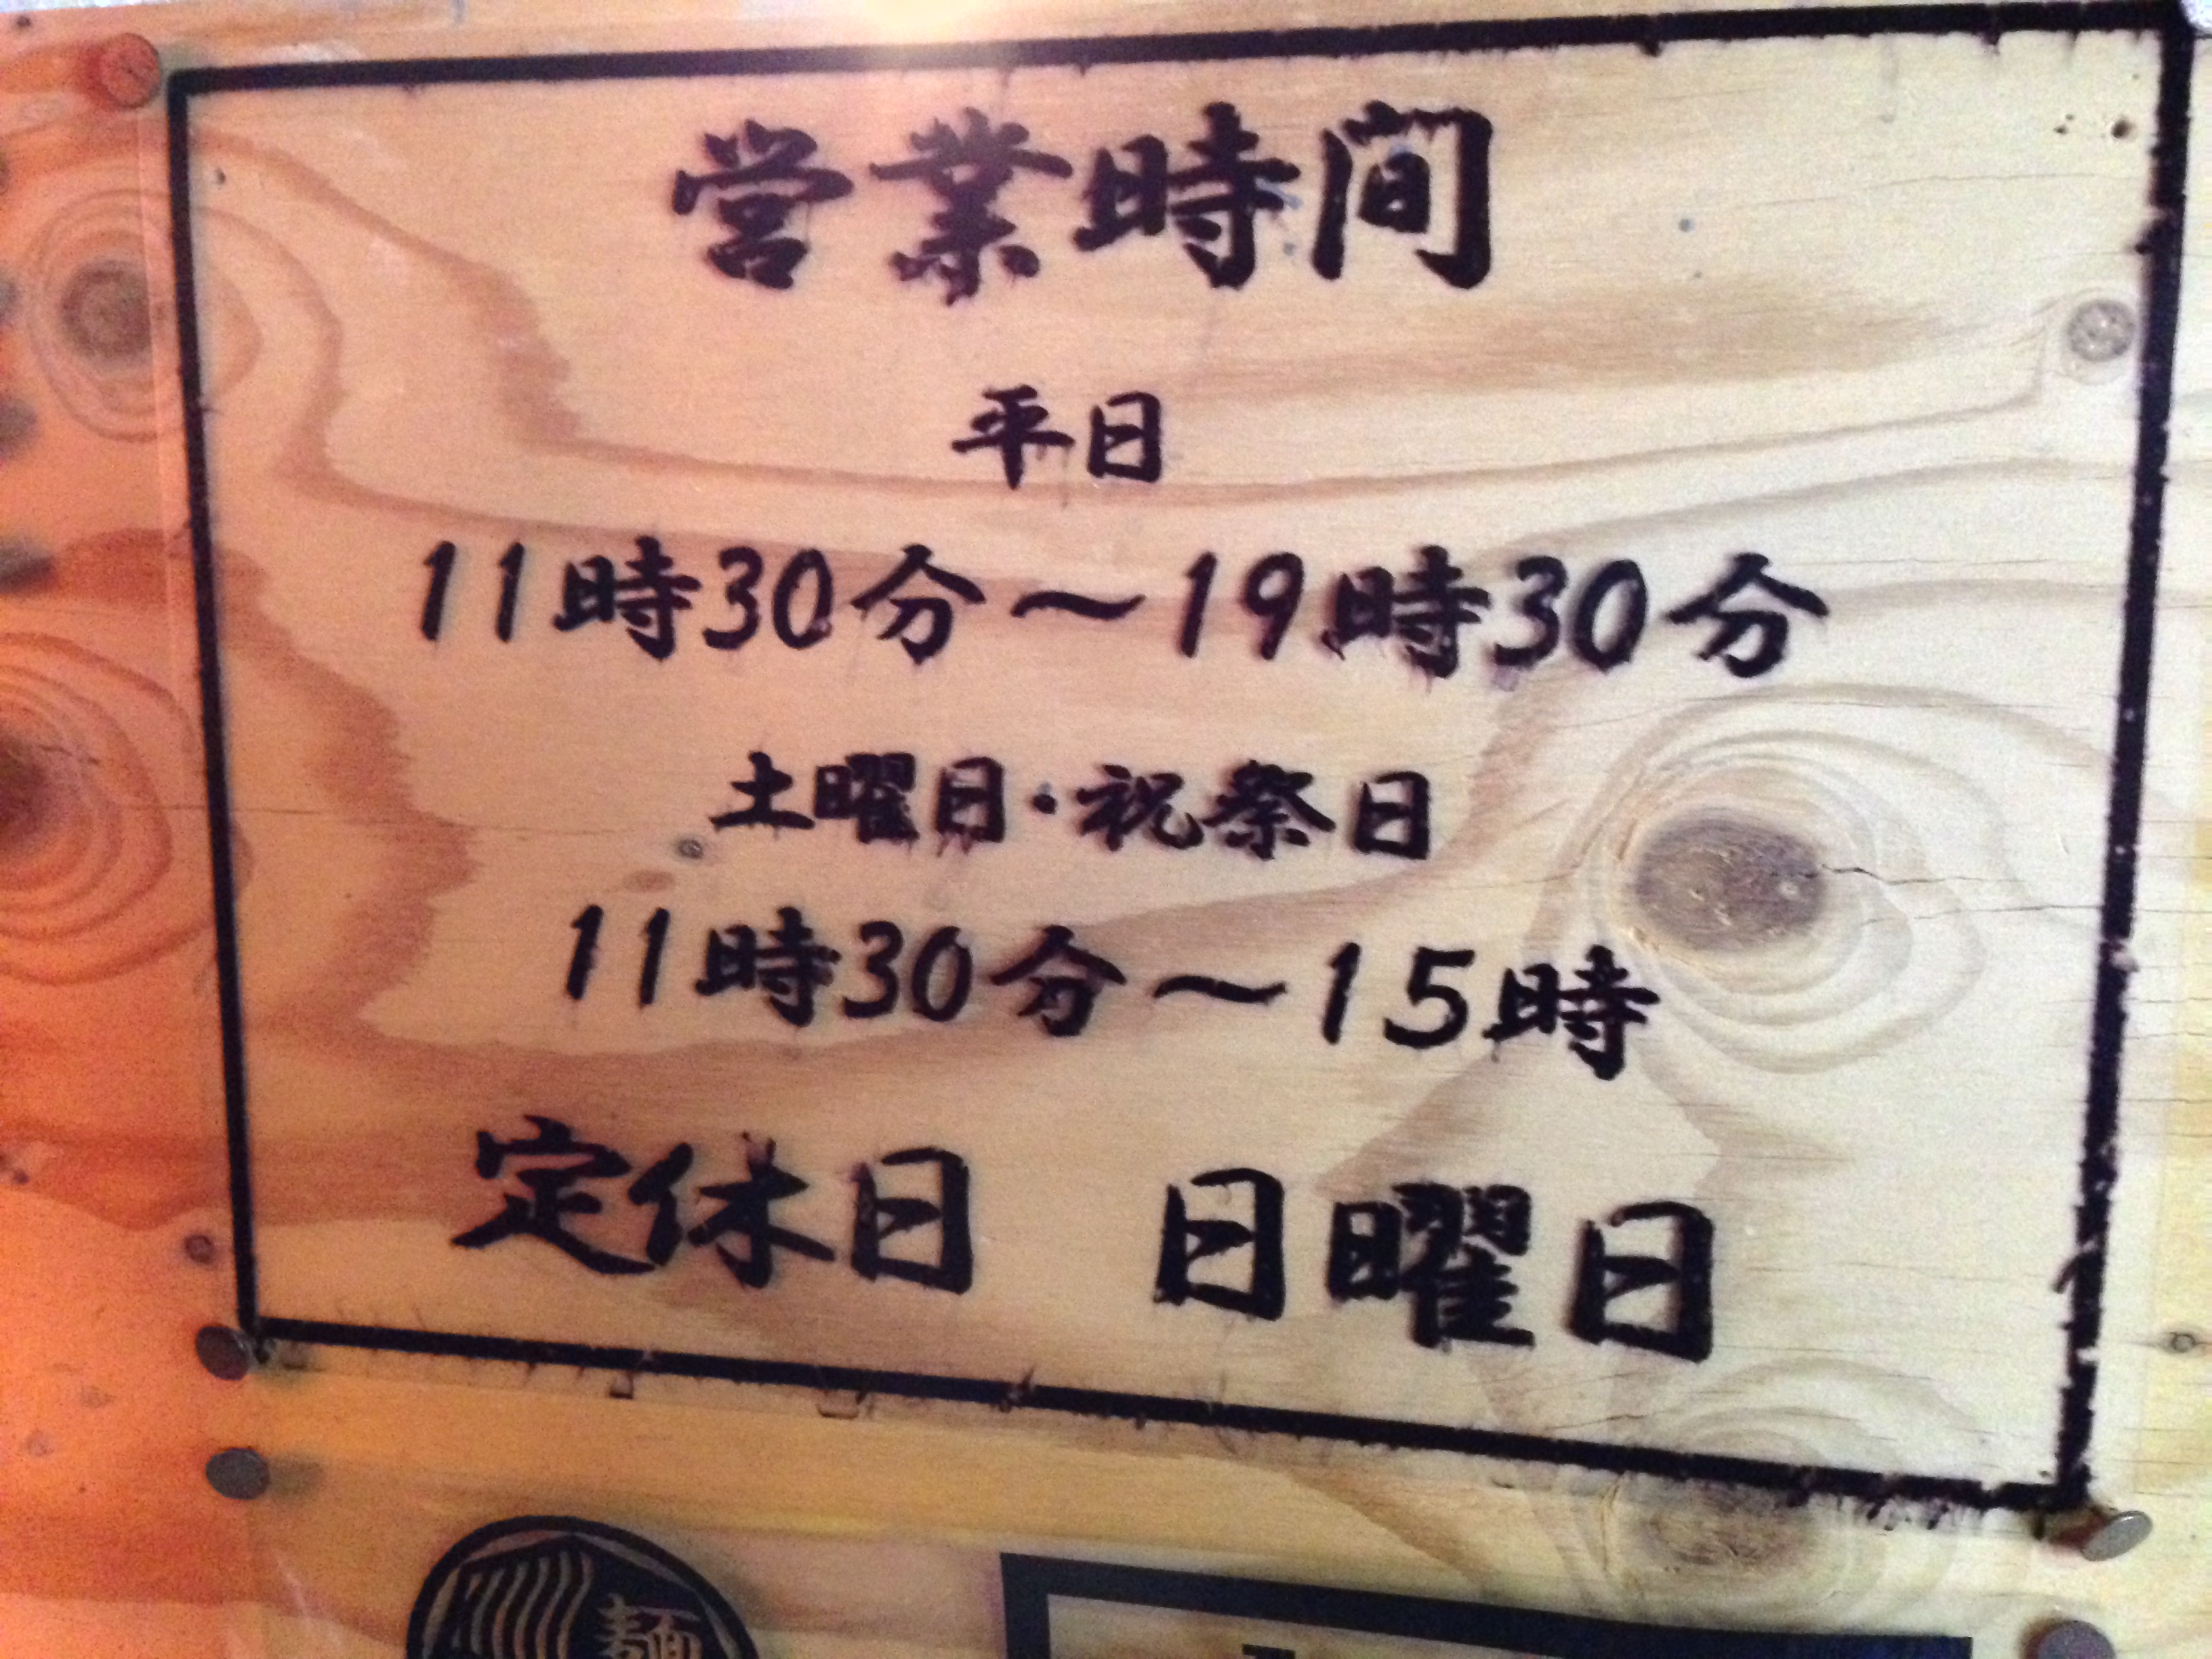 営業時間
平日
11時30分～19時30分
土曜日・祝祭日
11時30分～15時
定休日　日曜日
麺